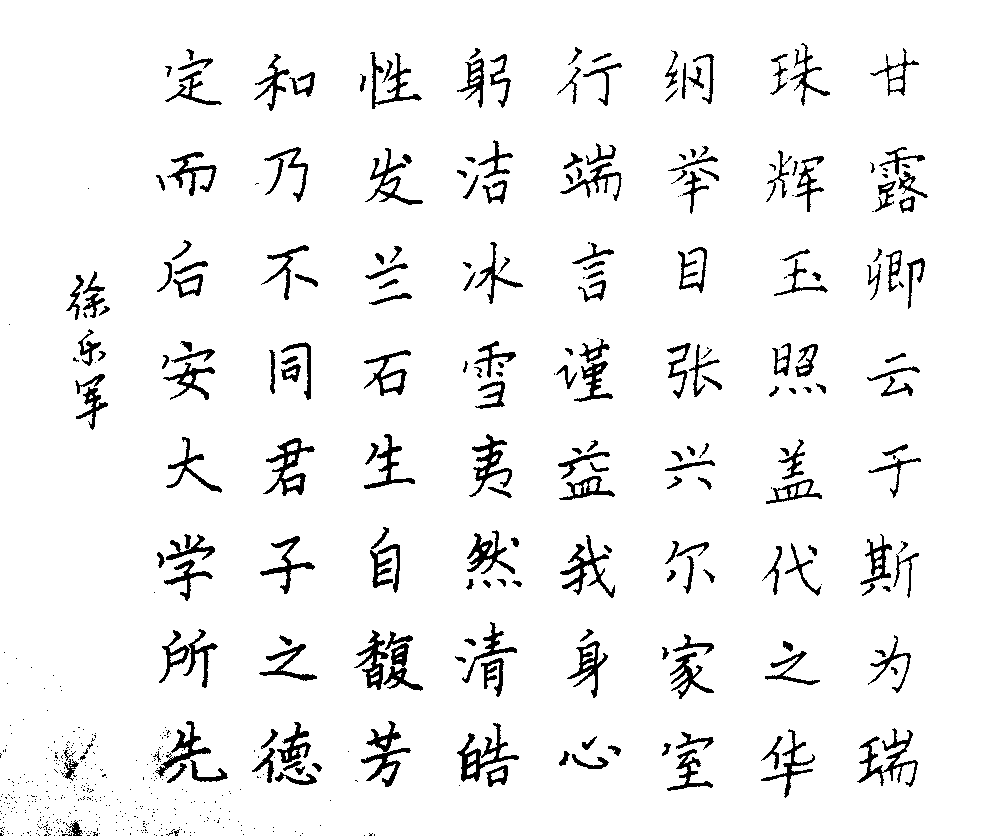 甘露卿云于斯为瑞
珠辉玉照盖代之华
纲举目张兴尔家室
行端言谨益我身心
躬洁冰雪夷然清皓
性发兰石生自馥芳
和乃不同君子之德
定而后安大学所先
徐乐军